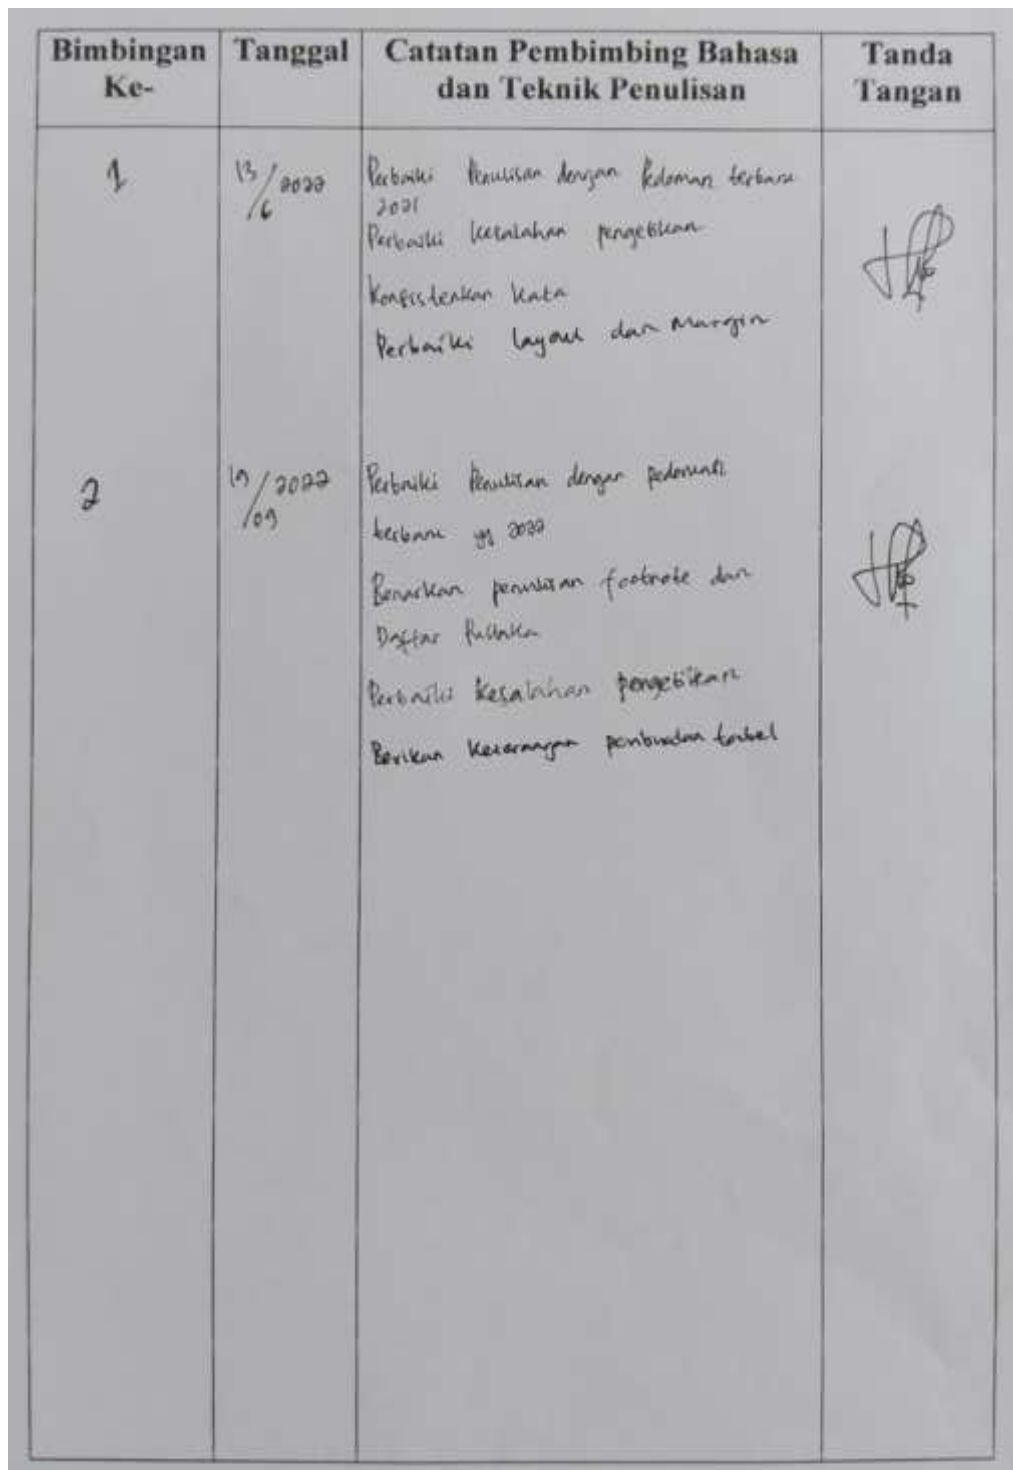 Bimbingan Ke-
Tanggal
Catatan Pembimbing Bahasa
dan Teknik Penulisan
Tanda
Tangan
1
13/6 2022
Perbaiki Penulisan dengan Pedoman terbaru
2021
Perbaiki kesalahan pengetikan
Konsistenkan kata
Perbaiki layout dan Margin
2
19/09 2022
Perbaiki Penulisan dengan pedoman
terbaru yg 2022
Benarkan penulisan footnote dan
Daftar Pustaka
Perbaiki kesalahan pengetikan
Berikan keterangan tabel